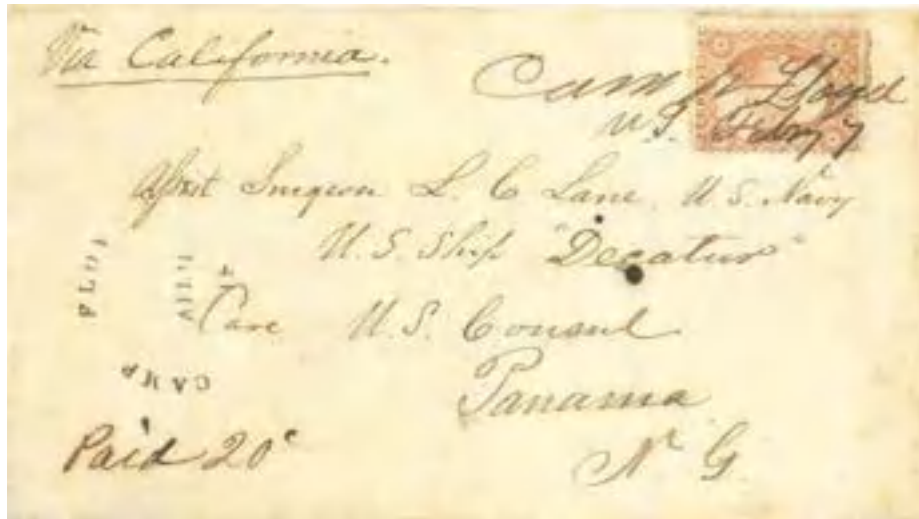 Via California.
Camp Floyd
U.T. Febry 7
Asst Surgeon L. C. Lane, U.S. Navy
U.S. Ship "Decatur"
Care U.S. Consul
Panama
N. G.
Paid 20c
CAMP FLOY